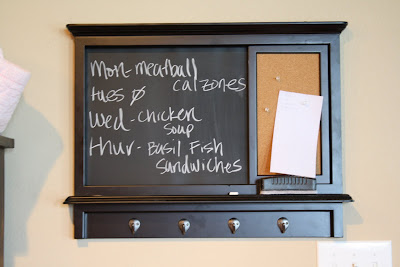 Mon- meatball
calzones
tues Ø
Wed- chicken
soup
thur- Basil Fish
sandwiches